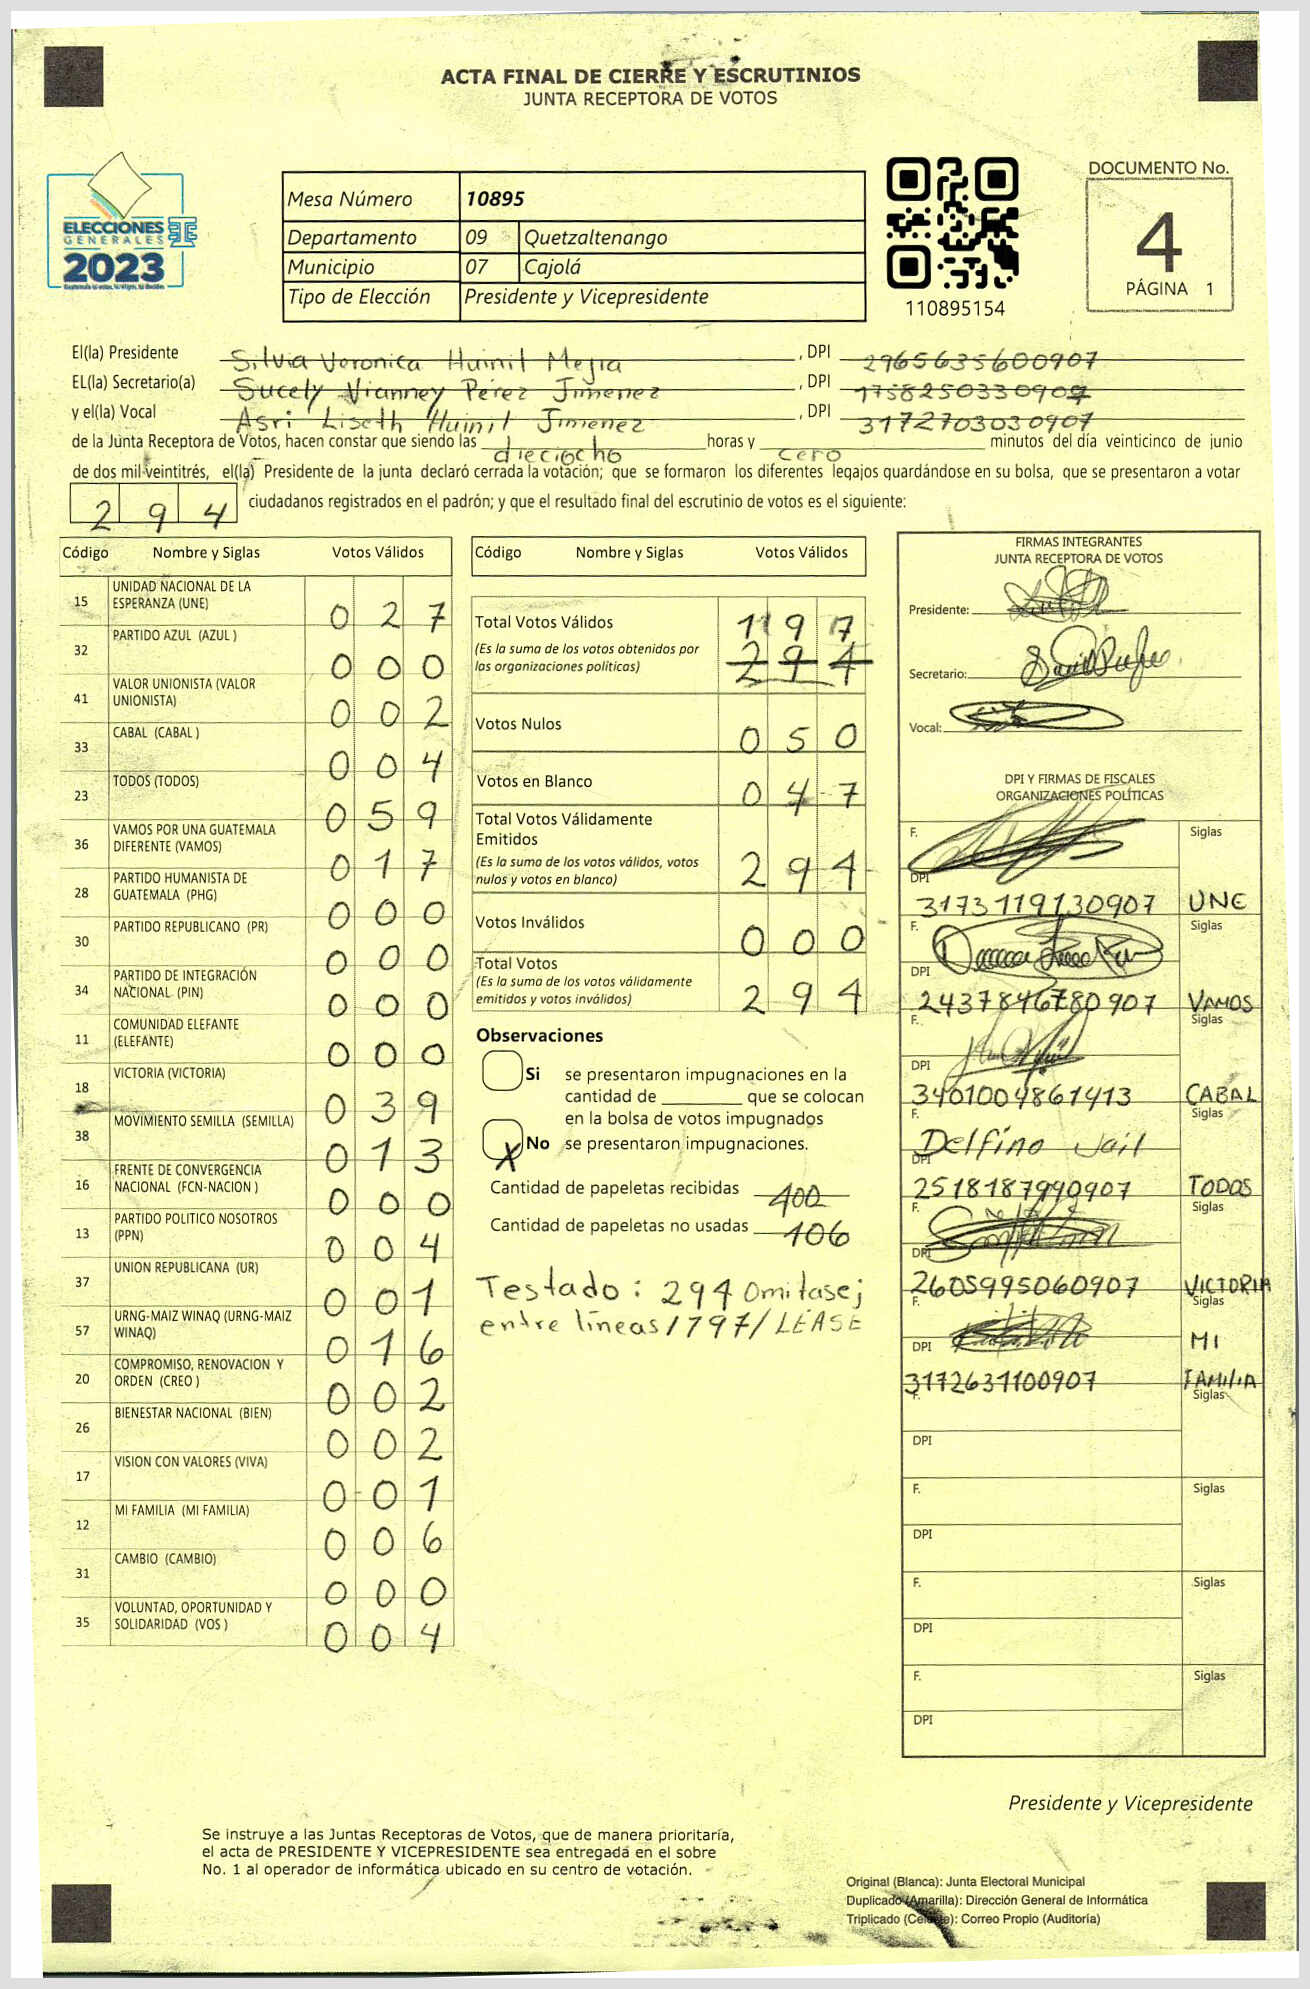 ACTA FINAL DE CIERRE Y ESCRUTINIOS
JUNTA RECEPTORA DE VOTOS
ELECCIONES
GENERALES
2023
Mesa Número 10895
Departamento 09 Quetzaltenango
Municipio 07 Cajolá
Tipo de Elección Presidente y Vicepresidente
110895154
DOCUMENTO No.
4
PÁGINA 1
El(la) Presidente Silvia Veronica Huinil Mejia , DPI 2965635600907
EL(la) Secretario(a) Sucely Vianney Pérez Jimenez , DPI 1758250330907
y el(la) Vocal Asri Liseth Huinil Jimenez , DPI 3172703030907
de la Junta Receptora de Votos, hacen constar que siendo las dieciocho horas y cero minutos del día veinticinco de junio
de dos mil veintitrés, el(la) Presidente de la junta declaró cerrada la votación; que se formaron los diferentes legajos guardándose en su bolsa, que se presentaron a votar
294 ciudadanos registrados en el padrón; y que el resultado final del escrutinio de votos es el siguiente:
Código Nombre y Siglas Votos Válidos
15 UNIDAD NACIONAL DE LA ESPERANZA (UNE) 027
32 PARTIDO AZUL (AZUL ) 000
41 VALOR UNIONISTA (VALOR UNIONISTA) 002
33 CABAL (CABAL ) 004
23 TODOS (TODOS) 059
36 VAMOS POR UNA GUATEMALA DIFERENTE (VAMOS) 017
28 PARTIDO HUMANISTA DE GUATEMALA (PHG) 000
30 PARTIDO REPUBLICANO (PR) 000
34 PARTIDO DE INTEGRACIÓN NACIONAL (PIN) 000
11 COMUNIDAD ELEFANTE (ELEFANTE) 000
18 VICTORIA (VICTORIA) 039
38 MOVIMIENTO SEMILLA (SEMILLA) 013
16 FRENTE DE CONVERGENCIA NACIONAL (FCN-NACION ) 000
13 PARTIDO POLITICO NOSOTROS (PPN) 004
37 UNION REPUBLICANA (UR) 001
57 URNG-MAIZ WINAQ (URNG-MAIZ WINAQ) 016
20 COMPROMISO, RENOVACION Y ORDEN (CREO ) 002
26 BIENESTAR NACIONAL (BIEN) 002
17 VISION CON VALORES (VIVA) 001
12 MI FAMILIA (MI FAMILIA) 006
31 CAMBIO (CAMBIO) 000
35 VOLUNTAD, OPORTUNIDAD Y SOLIDARIDAD (VOS ) 004
Código Nombre y Siglas Votos Válidos
Total Votos Válidos 197
(Es la suma de los votos obtenidos por las organizaciones políticas) 294
Votos Nulos 050
Votos en Blanco 047
Total Votos Válidamente Emitidos
(Es la suma de los votos válidos, votos nulos y votos en blanco) 294
Votos Inválidos 000
Total Votos
(Es la suma de los votos válidamente emitidos y votos inválidos) 294
Observaciones
Si se presentaron impugnaciones en la
cantidad de ________ que se colocan
en la bolsa de votos impugnados
X No se presentaron impugnaciones.
Cantidad de papeletas recibidas 400
Cantidad de papeletas no usadas 106
Testado: 294 Omitase;
entre líneas/197/LEASE
FIRMAS INTEGRANTES
JUNTA RECEPTORA DE VOTOS
Presidente:
Secretario:
Vocal:
DPI Y FIRMAS DE FISCALES
ORGANIZACIONES POLÍTICAS
F. Siglas
DPI 3173119130907 UNE
F. Siglas
DPI 2437846780907 VAMOS
F. Siglas
DPI 3401004861413 CABAL
F. Delfino Jail Siglas
DPI 2518187990907 TODOS
F. Siglas
DPI 2605995060907 VICTORIA
F. Siglas
DPI 3172631100907 MI FAMILIA
F. Siglas
DPI
F. Siglas
DPI
F. Siglas
DPI
F. Siglas
DPI
Presidente y Vicepresidente
Se instruye a las Juntas Receptoras de Votos, que de manera prioritaria,
el acta de PRESIDENTE Y VICEPRESIDENTE sea entregada en el sobre
No. 1 al operador de informática ubicado en su centro de votación.
Original (Blanca): Junta Electoral Municipal
Duplicado (Amarilla): Dirección General de Informática
Triplicado (Celeste): Correo Propio (Auditoría)